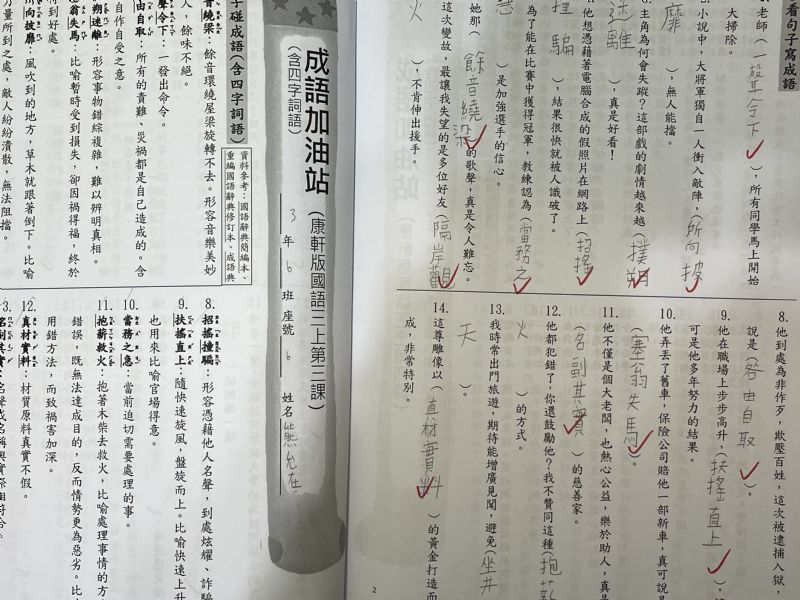 看句子寫成語
老師（一聲令下），所有同學馬上開始
大掃除。
小說中，大將軍獨自一人衝入敵陣，（所向披
靡），無人能擋。
6. 主角為何會失蹤？這部戲的劇情越來越（撲朔
迷離），真是好看！
他想憑藉著電腦合成的假照片在網路上（招搖
撞騙），結果很快就被人識破了。
為了能在比賽中獲得冠軍，教練認為（當務之
急）是加強選手的信心。
她那（餘音繞梁）的歌聲，真是令人難忘。
這次變故，最讓我失望的是多位好友（隔岸觀
火），不肯伸出援手。
8. 他到處為非作歹，欺壓百姓，這次被逮捕入獄，
說是（咎由自取）。
9. 他在職場上步步高升，（扶搖直上），
可是他多年努力的結果。
10. 他弄丟了舊車，保險公司賠他一部新車，真可說
（塞翁失馬）。
11. 他不僅是個大老闆，也熱心公益，樂於助人，真是
（名副其實）的慈善家。
12. 他都犯錯了，你還鼓勵他？我不贊同這種（抱薪
火）的方式。
13. 我時常出門旅遊，期待能增廣見聞，避免（坐井
天）。
14. 這尊雕像以（真材實料）的黃金打造而
成，非常特別。
2
成語加油站（康軒版國語三上第三課）
（含四字詞語）
3年6班座號6姓名熊允在
子碰成語（含四字詞語）
資料參考：國語辭典簡編本、
重編國語辭典修訂本、成語典
音繞梁：餘音環繞屋梁旋轉不去。形容音樂美妙
人，餘味不絕。
聲令下：一發出命令。
由自取：所有的責難、災禍都是自己造成的。含
自作自受之意。
朔迷離：形容事物錯綜複雜，難以辨明真相。
翁失馬：比喻暫時受到損失，卻因禍得福，終於
得到好處。
向披靡：風吹到的地方，草木就跟著倒下。比喻
力量所到之處，敵人紛紛潰散，無法阻擋。
8. 招搖撞騙：形容憑藉他人名聲，到處炫耀、詐騙
9. 扶搖直上：隨快速旋風，盤旋而上。比喻快速上升
也用來比喻官場得意。
10. 當務之急：當前迫切需要處理的事。
11. 抱薪救火：抱著木柴去救火，比喻處理事情的方
錯誤，既無法達成目的，反而情勢更為惡劣。比
用錯方法，而致禍害加深。
12. 真材實料：材質原料真實不假。
3. 名副其實：名聲或名稱與實際相符合。